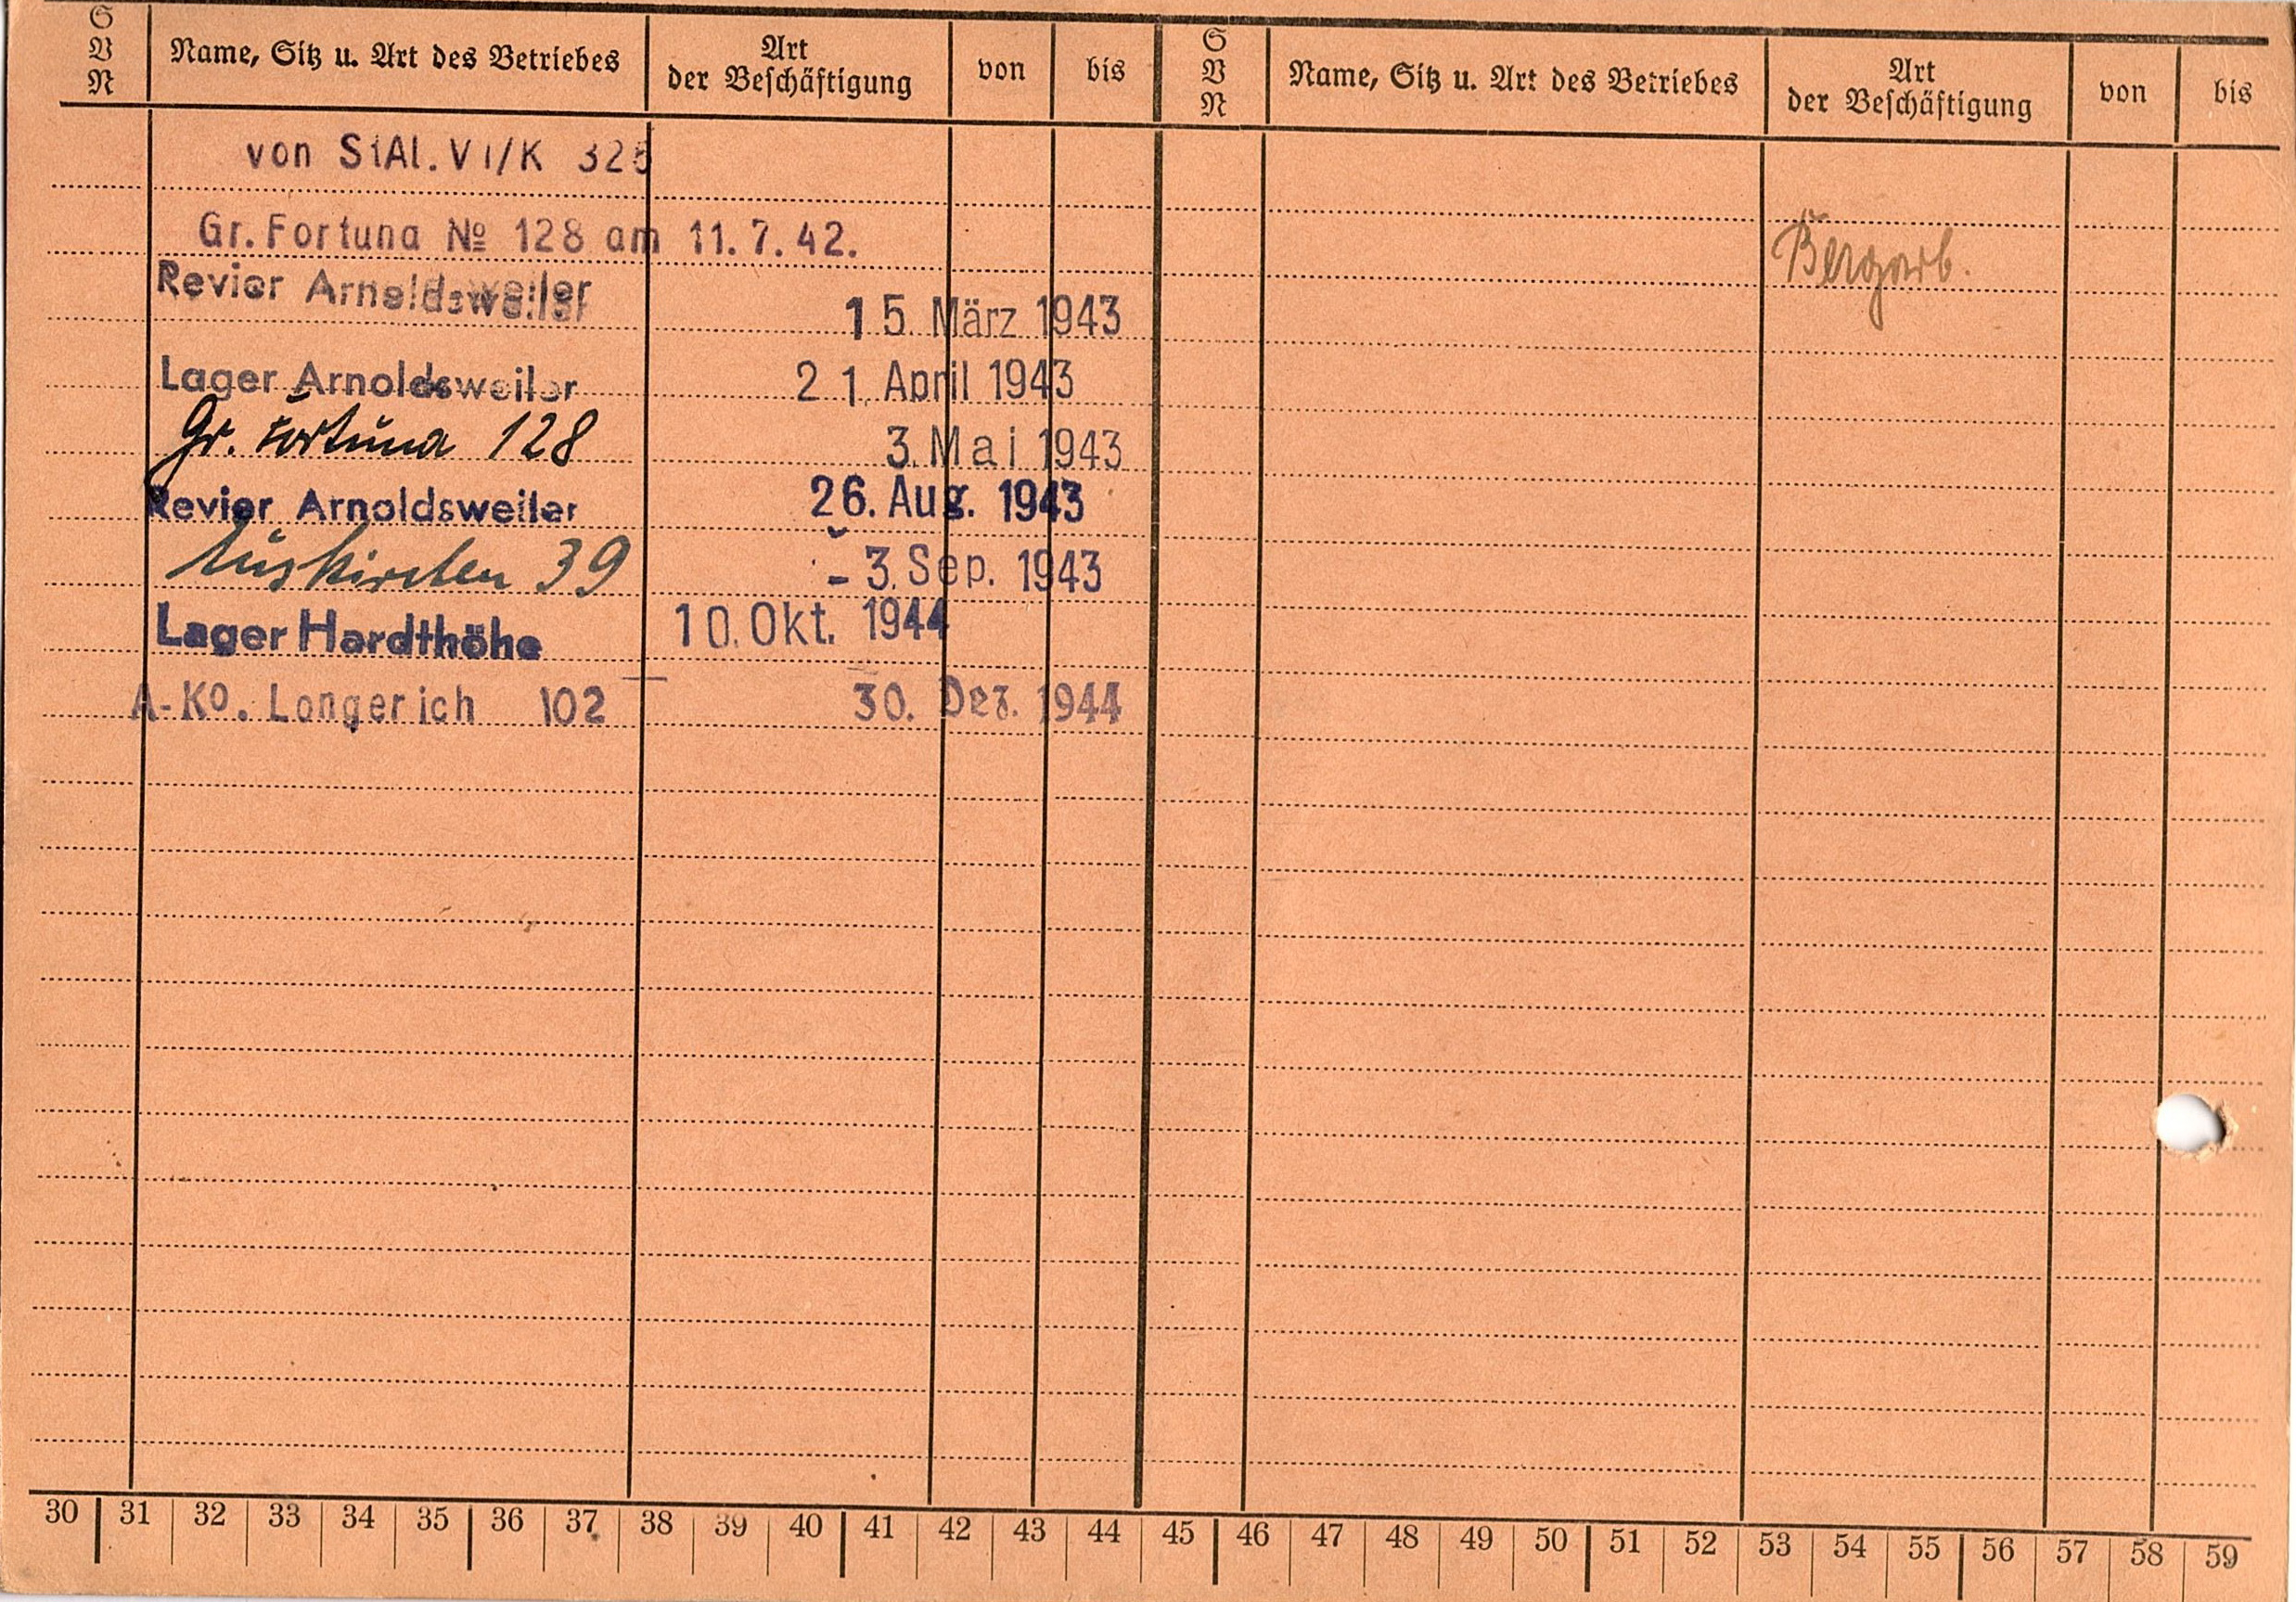 S V N Name, Sitz u. Art des Betriebes Art der Beschäftigung von bis S V N Name, Sitz u. Art des Betriebes Art der Beschäftigung von bis
von StAl. VI/K 326
Gr. Fortuna № 128 am 11. 7. 42. Bergarb.
Revier Arnoldsweiler 15. März 1943
Lager Arnoldsweiler 21. April 1943
Gr. Fortuna 128 3. Mai 1943
Revier Arnoldsweiler 26. Aug. 1943
Euskirchen 39 - 3. Sep. 1943
Lager Hardthöhe 10. Okt. 1944
A-Ko. Longerich 102 30. Dez. 1944
30 31 32 33 34 35 36 37 38 39 40 41 42 43 44 45 46 47 48 49 50 51 52 53 54 55 56 57 58 59